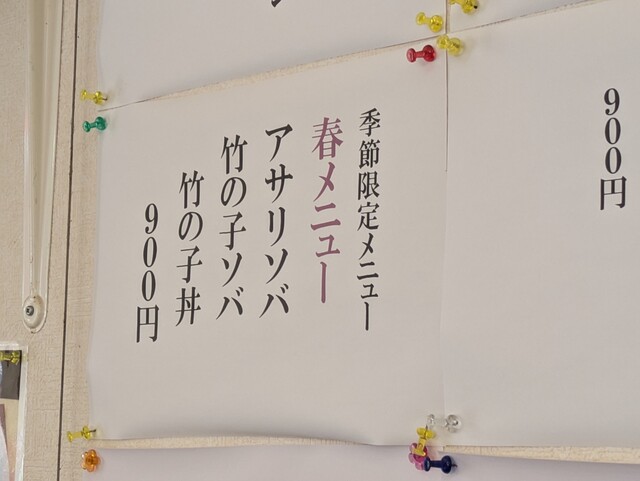 900円
季節限定メニュー
春メニュー
アサリソバ
竹の子ソバ
竹の子丼
900円